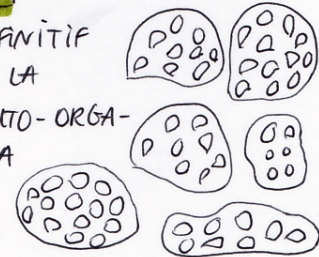 FINITIF
LA
UTO-ORGA-
A